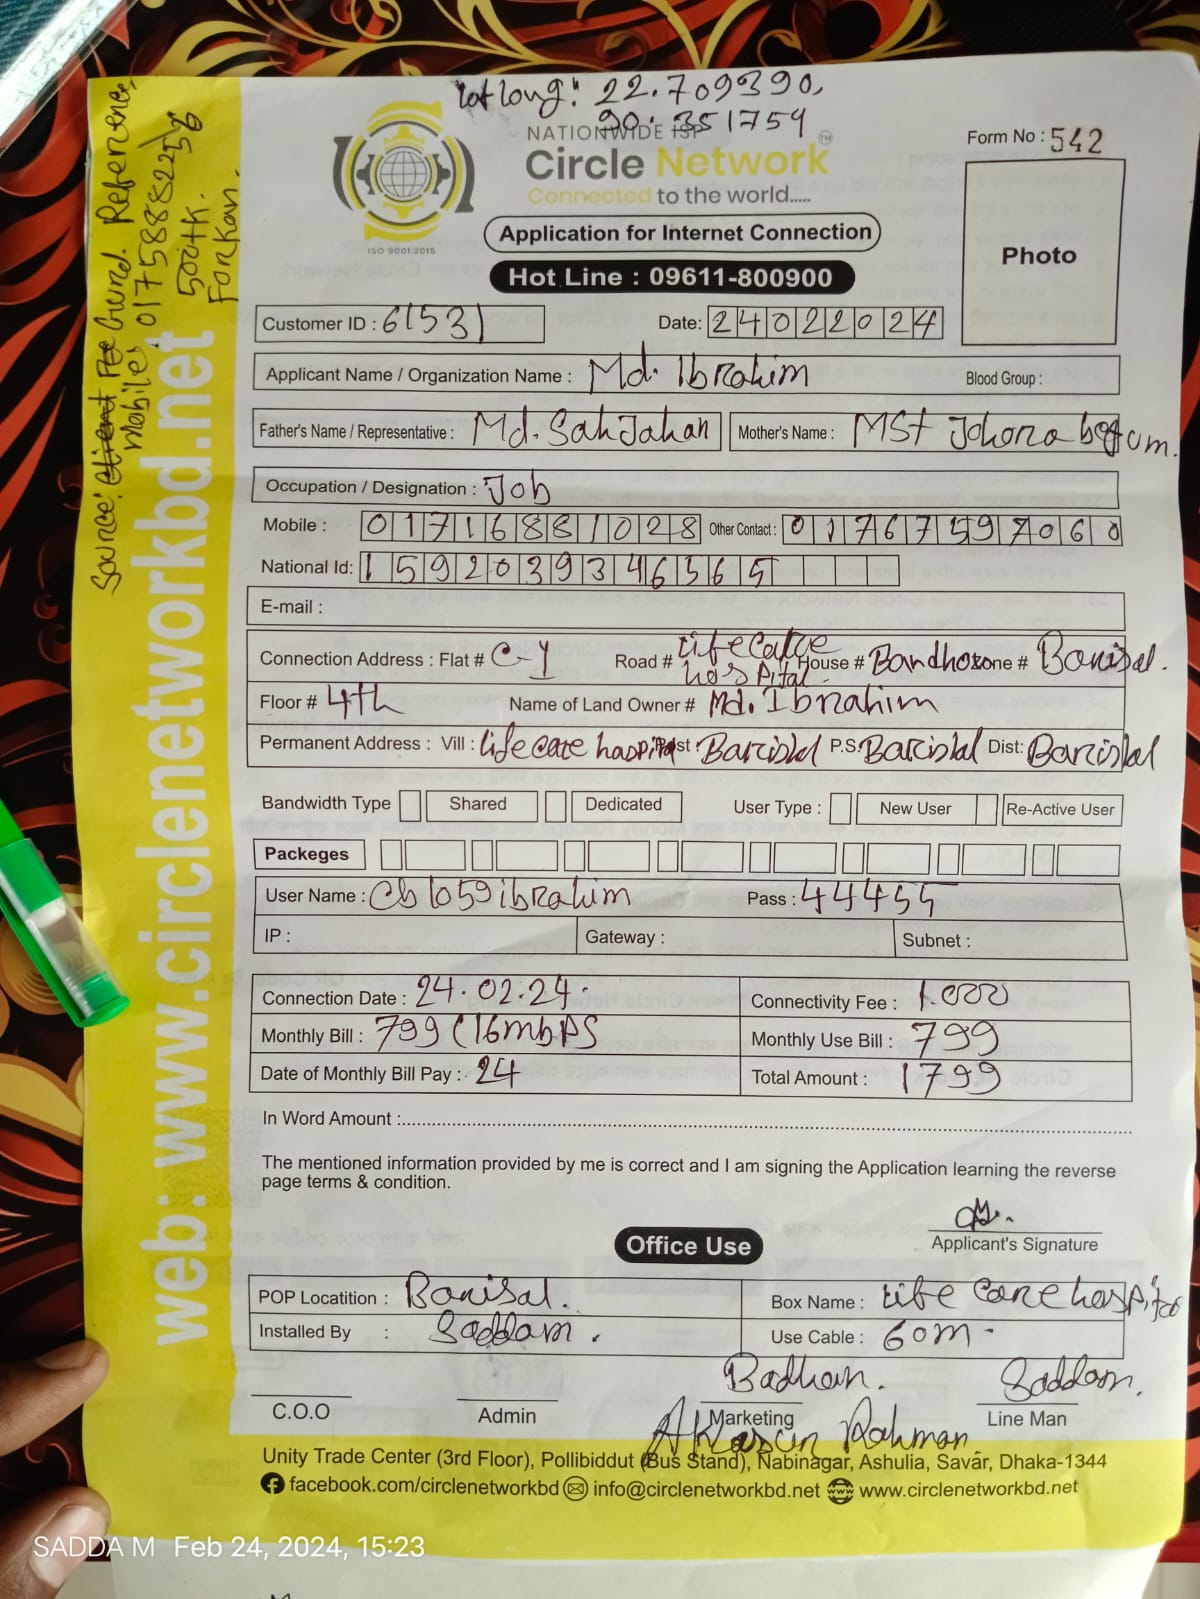 Lat long: 22.709390,
90.351759
NATIONWIDE ISP
Circle Network
TM
Connected to the world.....
ISO 9001:2015
Form No : 542
Photo
Application for Internet Connection
Hot Line : 09611-800900
Reference
Mobile: 01758882256
500tk.
Forkan.
web: www.circlenetworkbd.net
Customer ID : 61531 Date: 24022024
Applicant Name / Organization Name : Md. Ibrahim Blood Group :
Father's Name / Representative : Md. Sah Jahan Mother's Name : MST Johora begum.
Occupation / Designation : Job
Mobile : 01716881028 Other Contact : 01767597060
National Id: 1592039346565
E-mail :
Connection Address : Flat # C-Y Road # Life Care hospital House # Bandho Zone # Barisal.
Floor # 4th Name of Land Owner # Md. Ibrahim
Permanent Address : Vill : Life care hospital Post Barishal P.S Barishal Dist: Barishal
Bandwidth Type Shared Dedicated User Type : New User Re-Active User
Packeges
User Name : Cb1059ibrahim Pass : 44455
IP : Gateway : Subnet :
Connection Date : 24.02.24. Connectivity Fee : 1000
Monthly Bill : 799 (16mbps Monthly Use Bill : 799
Date of Monthly Bill Pay : 24 Total Amount : 1799
In Word Amount :
The mentioned information provided by me is correct and I am signing the Application learning the reverse
page terms & condition.
Applicant's Signature
Office Use
POP Locatition : Barisal. Box Name : Life Care hospital
Installed By : Saddam. Use Cable : 60m.
Badhan. Saddam.
C.O.O Admin Marketing Line Man
Rahman
Unity Trade Center (3rd Floor), Pollibiddut (Bus Stand), Nabinagar, Ashulia, Savar, Dhaka-1344
facebook.com/circlenetworkbd info@circlenetworkbd.net www.circlenetworkbd.net
SADDA M Feb 24, 2024, 15:23